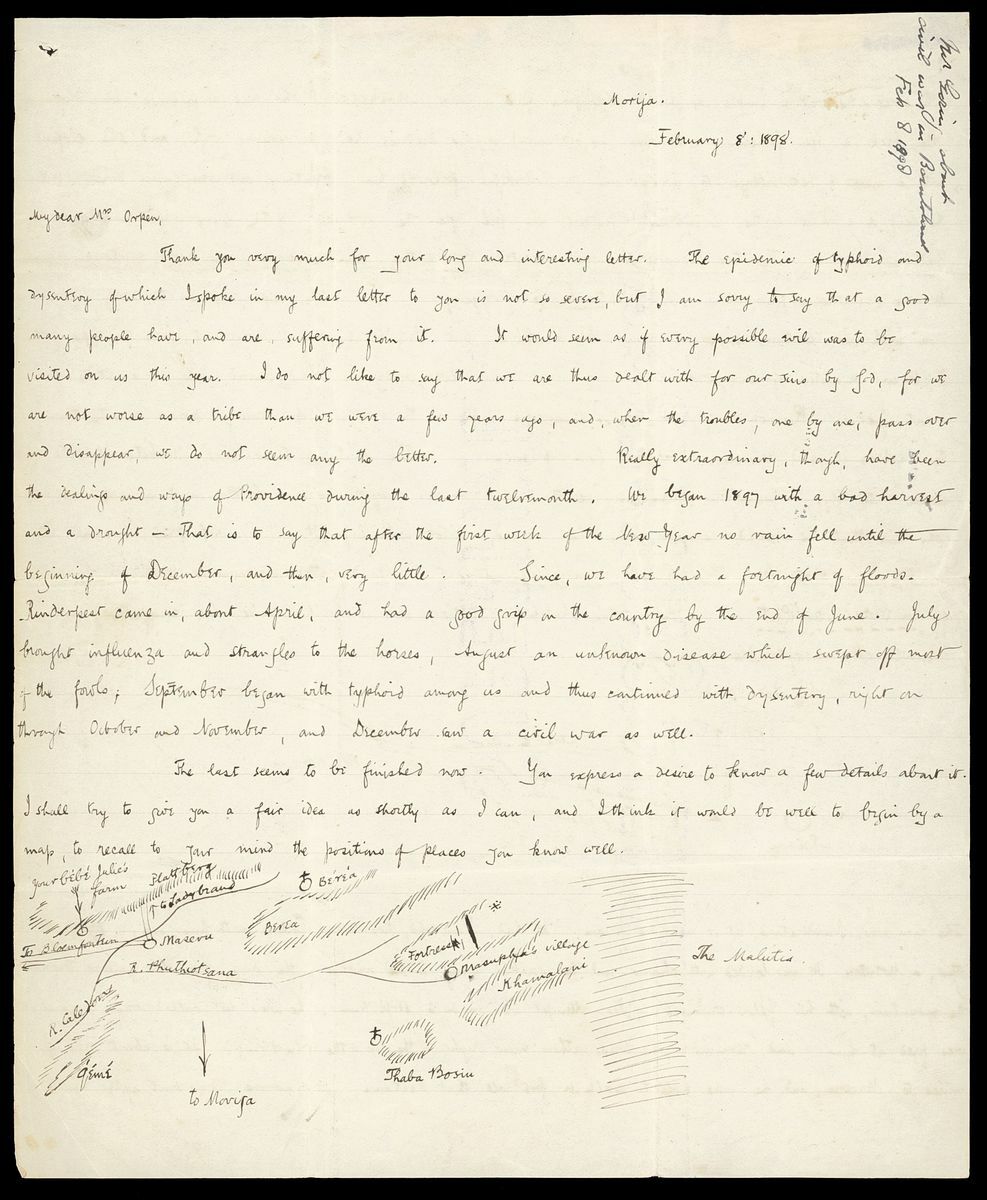 about
civil war in Basutoland
Feb 8 1898
Morija.
February 8: 1898.
My dear Mrs Orpen,
Thank you very much for your long and interesting letter. The epidemic of typhoid and
dysentery of which I spoke in my last letter to you is not so severe, but I am sorry to say that a good
many people have, and are, suffering from it. It would seem as if every possible evil was to be
visited on us this year. I do not like to say that we are thus dealt with for our sins by God, for we
are not worse as a tribe than we were a few years ago, and, when the troubles, one by one, pass over
and disappear, we do not seem any the better. Really extraordinary, though, have been
the dealings and ways of Providence during the last twelvemonth. We began 1897 with a bad harvest
and a drought – That is to say that after the first week of the New Year no rain fell until the
beginning of December, and then, very little. Since, we have had a fortnight of floods.
Rinderpest came in, about April, and had a good grip on the country by the end of June. July
brought influenza and strangles to the horses, August an unknown disease which swept off most
of the fowls; September began with typhoid among us and thus continued with dysentery, right on
through October and November, and December saw a civil war as well.
The last seems to be finished now. You express a desire to know a few details about it.
I shall try to give you a fair idea as shortly as I can, and I think it would be well to begin by a
map, to recall to your mind the positions of places you know well.
your bébé Julie's
farm
Platberg
to Ladybrand
Béréa
To Bloemfontein
Maseru
Berea
Fortress
Masupha's village
Khamolani
The Malutis.
R. Phuthiatsana
R. Caledon
Qémé
to Morija
Thaba Bosiu